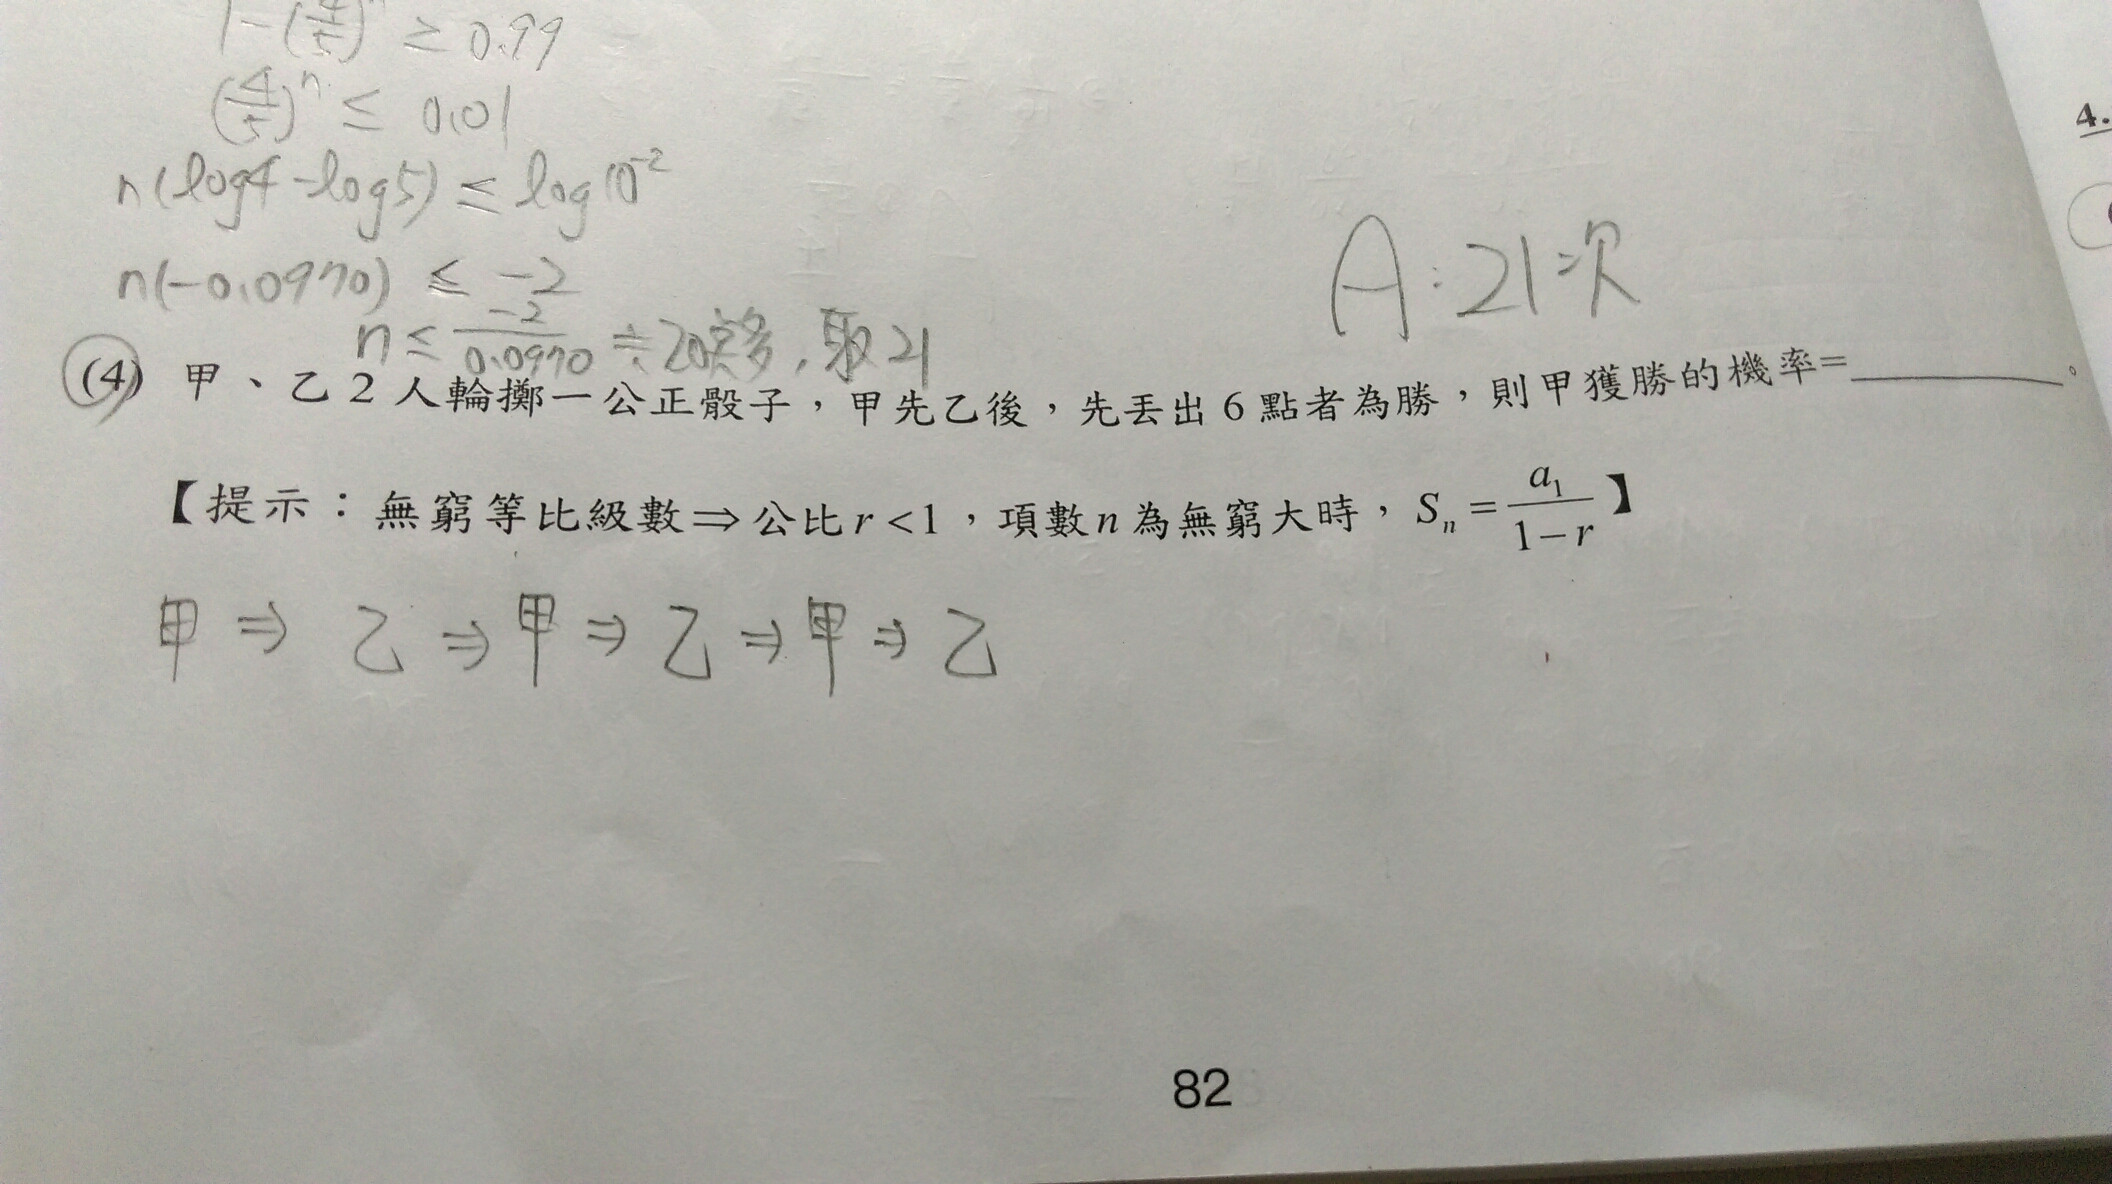 1-(4/5)^n ≥ 0.99
(4/5)^n ≤ 0.01
n(log4-log5) ≤ log10^-2
n(-0.0970) ≤ -2
n ≤ -2/0.0970 ≒ 20多, 取21
A:21次
(4) 甲、乙2人輪擲一公正骰子,甲先乙後,先丟出6點者為勝,則甲獲勝的機率=________。
【提示:無窮等比級數⇒公比r<1,項數n為無窮大時,Sn=a1/(1-r)】
甲⇒乙⇒甲⇒乙⇒甲⇒乙
82
4.